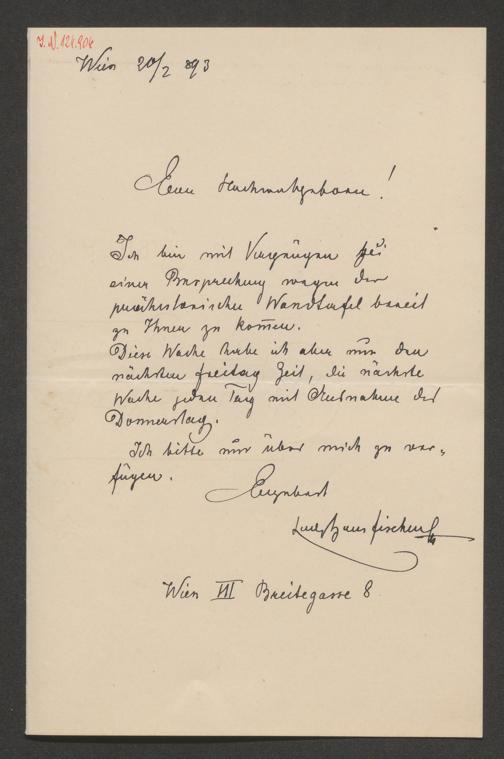 J.N. 121.904
Wien 20/2 893
Euer Hochwohlgeboren!
Ich bin mit Vergnügen bei
einer Besprechung wegen der
prähistorischen Wandtafel bereit
zu Ihnen zu kom̅en.
Diese Woche habe ich aber nur den
nächsten Freitag Zeit, die nächste
Woche jeden Tag mit Ausnahme des
Donnerstag.
Ich bitte nur über mich zu ver-
fügen.
Ergebenst
Ludw Hans Fischer
Wien VII Breitegasse 8